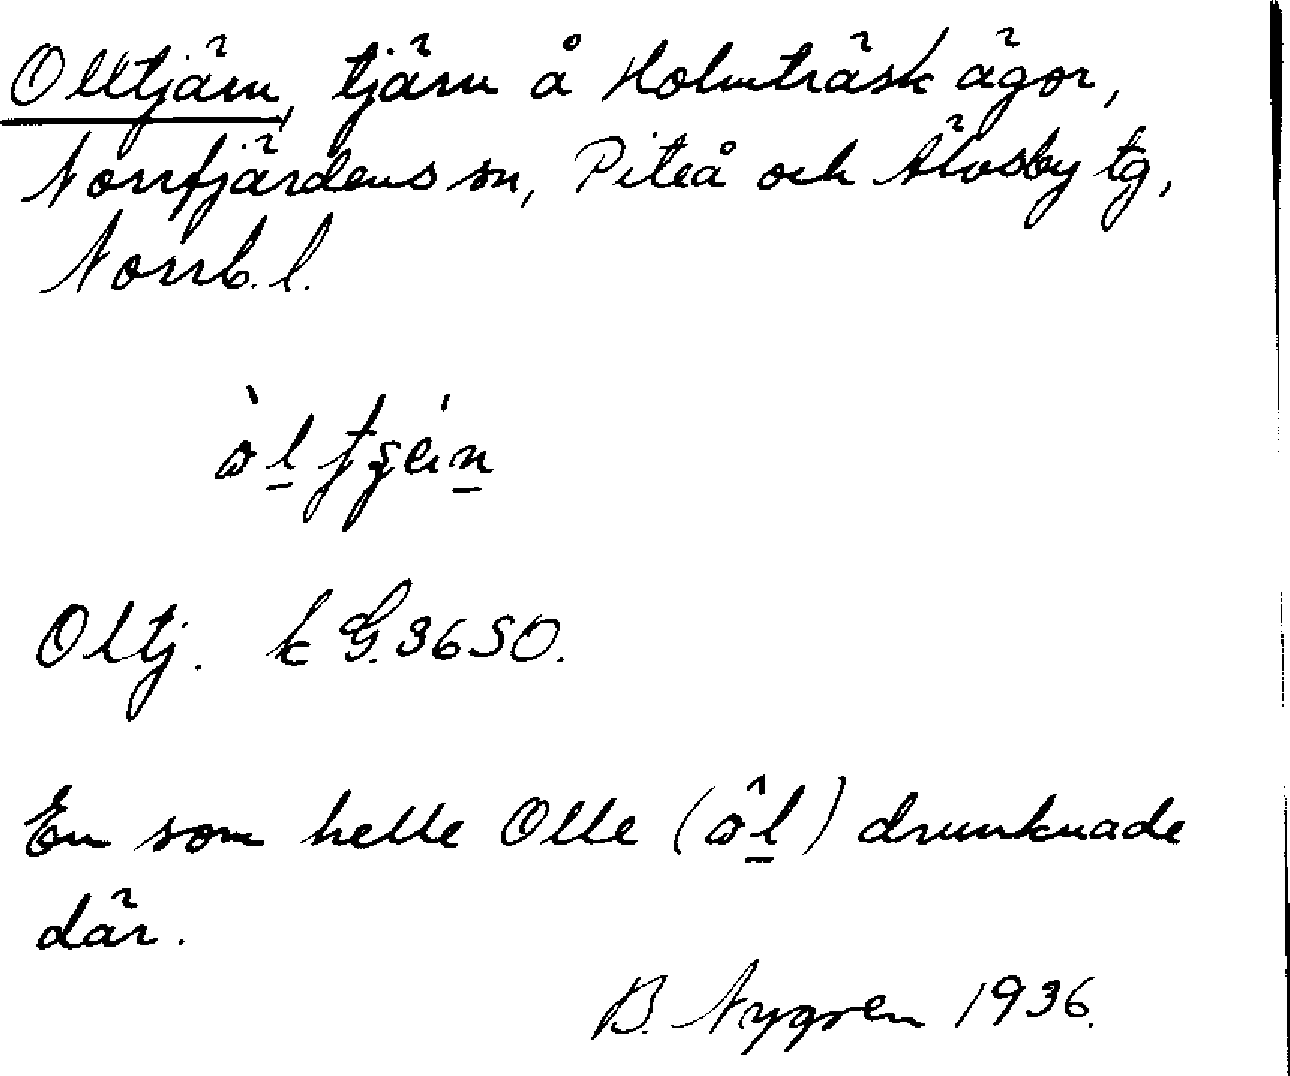 Olltjärn, tjärn å Holmträsk ägor,
Norrfjärdens sn, Piteå och Älvsby tg,
Norrb. l.
Oltj. k G. 3650.
En som hette Olle (ôl̲) drunknade
där.
B. Nygren 1936.